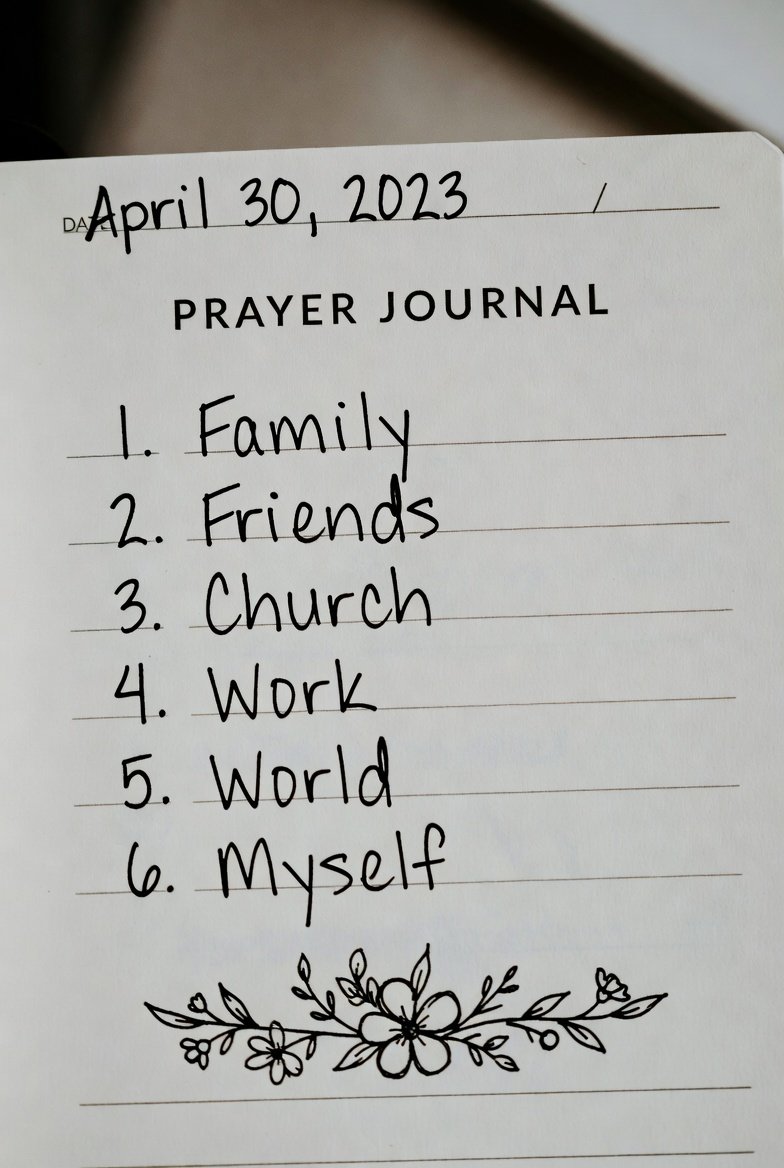 DATE
April 30, 2023 /
PRAYER JOURNAL
1. Family
2. Friends
3. Church
4. Work
5. World
6. Myself